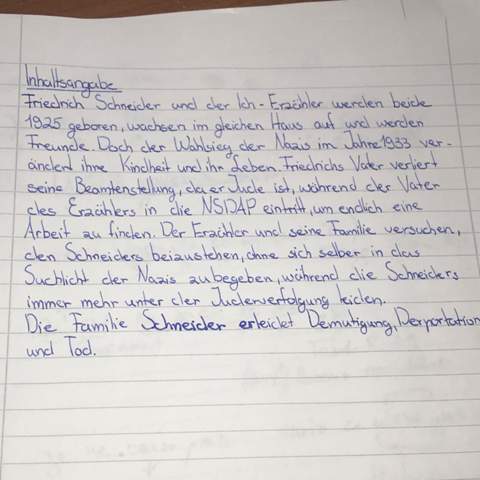 Inhaltsangabe
Friedrich Schneider und der Ich-Erzähler werden beide
1925 geboren, wachsen im gleichen Haus auf und werden
Freunde. Doch der Wahlsieg der Nazis im Jahre 1933 ver-
ändert ihre Kindheit und ihr Leben. Friedrichs Vater verliert
seine Beamtenstellung, da er Jude ist, während der Vater
des Erzählers in die NSDAP eintritt, um endlich eine
Arbeit zu finden. Der Erzähler und seine Familie versuchen,
den Schneiders beizustehen, ohne sich selber in das
Suchlicht der Nazis zubegeben, während die Schneiders
immer mehr unter der Judenverfolgung leiden.
Die Familie Schneider erleidet Demutigung, Derportation
und Tod.